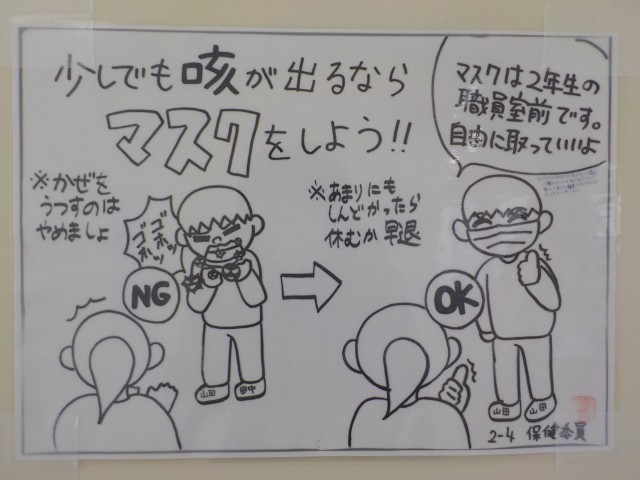 少しでも咳が出るなら
マスクをしよう!!
マスクは2年生の
職員室前です。
自由に取っていいよ
※かぜを
うつすのは
やめましょ
ゴホッ
ゴホッ
NG
山田
田中
※あまりにも
しんどかったら
休むか早退
OK
山田
山田
2-4 保健委員